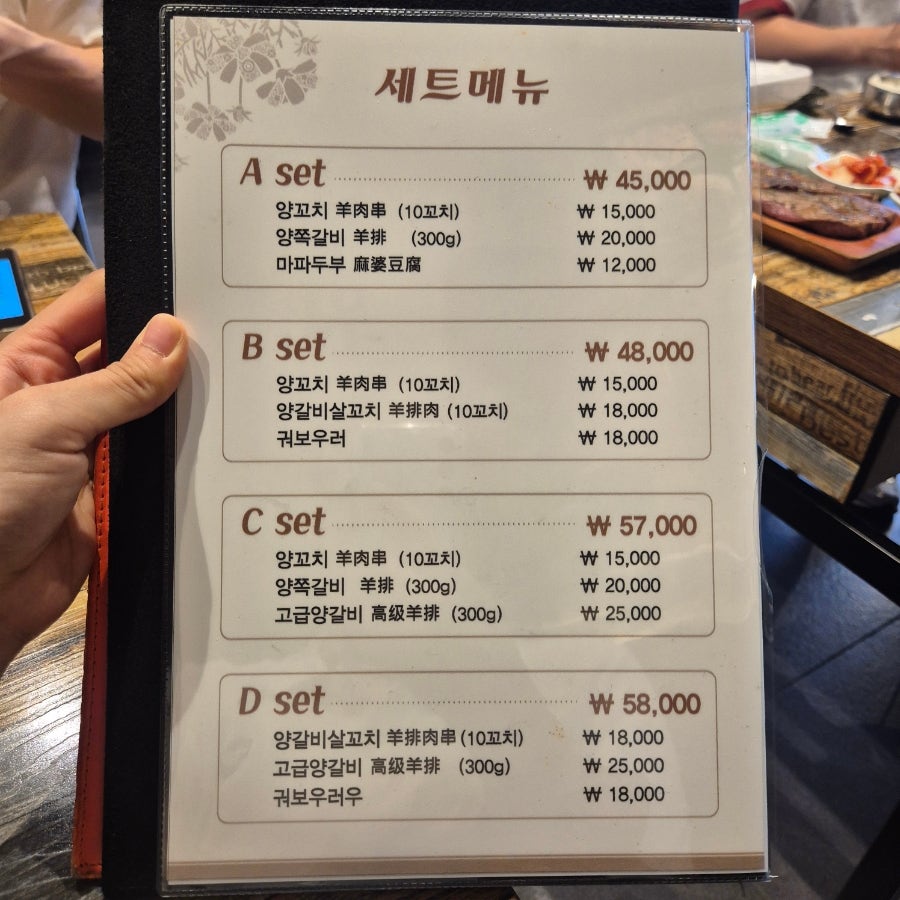 세트메뉴
A set ₩ 45,000
양꼬치 羊肉串 (10꼬치) ₩ 15,000
양쪽갈비 羊排 (300g) ₩ 20,000
마파두부 麻婆豆腐 ₩ 12,000
B set ₩ 48,000
양꼬치 羊肉串 (10꼬치) ₩ 15,000
양갈비살꼬치 羊排肉 (10꼬치) ₩ 18,000
궈보우러 ₩ 18,000
C set ₩ 57,000
양꼬치 羊肉串 (10꼬치) ₩ 15,000
양쪽갈비 羊排 (300g) ₩ 20,000
고급양갈비 高级羊排 (300g) ₩ 25,000
D set ₩ 58,000
양갈비살꼬치 羊排肉串 (10꼬치) ₩ 18,000
고급양갈비 高级羊排 (300g) ₩ 25,000
궈보우러우 ₩ 18,000